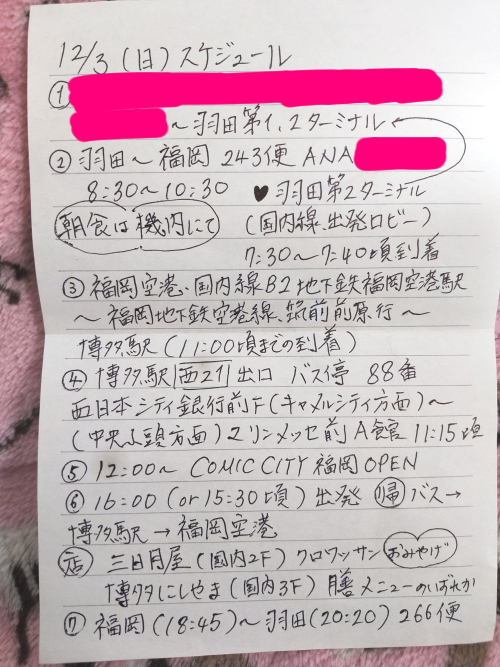 12/3 (日) スケジュール
①
～羽田第1、2ターミナル
② 羽田～福岡 243便 ANA
8:30～10:30 ♥羽田第2ターミナル
朝食は機内にて (国内線、出発ロビー)
7:30～7:40頃到着
③ 福岡空港、国内線B2地下鉄福岡空港駅
～福岡地下鉄空港線、筑前前原行～
博多駅(11:00頃までの到着)
④ 博多駅 西21 出口 バス停 88番
西日本シティ銀行前F(キャメルシティ方面)～
(中央ふ頭方面)マリンメッセ前A館 11:15頃
⑤ 12:00～ COMIC CITY 福岡 OPEN
⑥ 16:00 (or 15:30頃) 出発 帰 バス→
博多駅→福岡空港
店 三日月屋(国内2F) クロワッサン おみやげ
博多にしやま(国内3F) 膳メニューのいずれか
⑦ 福岡(18:45)～羽田(20:20) 266便